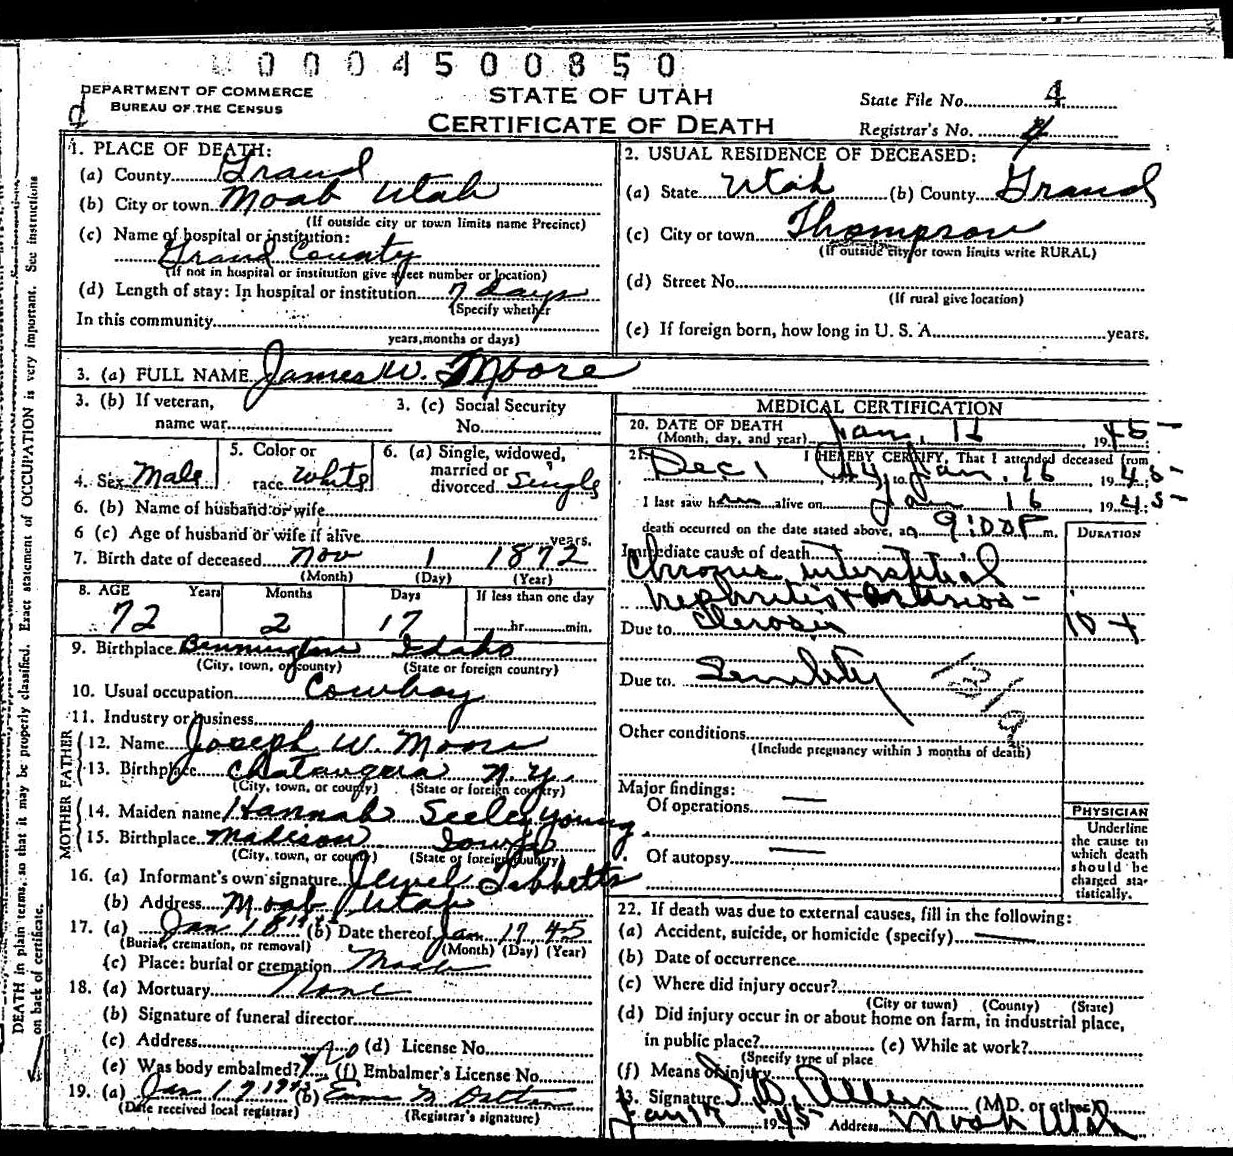 0004500850
DEPARTMENT OF COMMERCE
BUREAU OF THE CENSUS
STATE OF UTAH
CERTIFICATE OF DEATH
State File No. 4
Registrar's No. 4
1. PLACE OF DEATH:
(a) County Grand
(b) City or town Moab Utah
(If outside city or town limits name Precinct)
(c) Name of hospital or institution:
Grand County
(If not in hospital or institution give street number or location)
(d) Length of stay: In hospital or institution 7 days
(Specify whether
In this community
years, months or days)
2. USUAL RESIDENCE OF DECEASED:
(a) State Utah (b) County Grand
(c) City or town Thompson
(If outside city or town limits write RURAL)
(d) Street No.
(If rural give location)
(e) If foreign born, how long in U. S. A. years.
3. (a) FULL NAME James W. Moore
3. (b) If veteran,
name war
3. (c) Social Security
No.
4. Sex Male
5. Color or
race White
6. (a) Single, widowed,
married or
divorced Single
6. (b) Name of husband or wife
6 (c) Age of husband or wife if alive years.
7. Birth date of deceased Nov 1 1872
(Month) (Day) (Year)
8. AGE Years Months Days If less than one day
72 2 17 hr. min.
9. Birthplace Bennington Idaho
(City, town, or county) (State or foreign country)
10. Usual occupation Cowboy
11. Industry or business
FATHER
12. Name Joseph W Moore
13. Birthplace Chatauqua N.Y.
(City, town, or county) (State or foreign country)
MOTHER
14. Maiden name Hannah Seeley Young
15. Birthplace Madison Iowa
(City, town, or county) (State or foreign country)
16. (a) Informant's own signature Jewel Tibbetts
(b) Address Moab Utah
17. (a) Jan 18th (b) Date thereof Jan 17 45
(Burial, cremation, or removal) (Month) (Day) (Year)
(c) Place: burial or cremation Moab
18. (a) Mortuary None
(b) Signature of funeral director
(c) Address (d) License No.
(e) Was body embalmed? No (f) Embalmer's License No.
19. (a) Jan 17 1945 (b) Emma
(Date received local registrar) (Registrar's signature)
MEDICAL CERTIFICATION
20. DATE OF DEATH
(Month, day, and year) Jan, 16, 1945
21. I HEREBY CERTIFY, That I attended deceased from
Dec 1, 44, to Jan, 16 1945
I last saw him alive on Jan 16 1945
death occurred on the date stated above, at 9:00 P m.
DURATION
Immediate cause of death
Chronic interstitial
nephritis + arterios-
Due to clerosis 10 +
Due to Senility
131a
Other conditions
(Include pregnancy within 3 months of death)
Major findings:
Of operations —
Of autopsy —
PHYSICIAN
Underline
the cause to
which death
should be
charged sta-
tistically.
22. If death was due to external causes, fill in the following:
(a) Accident, suicide, or homicide (specify) —
(b) Date of occurrence
(c) Where did injury occur?
(City or town) (County) (State)
(d) Did injury occur in or about home on farm, in industrial place,
in public place? (e) While at work?
(Specify type of place
(f) Means of injury
23. Signature I. W. Allen (M.D. or other)
Jan 17 1945 Address Moab Utah
DEATH in plain terms, so that it may be properly classified. Exact statement of OCCUPATION is very important. See instructions
on back of certificate.